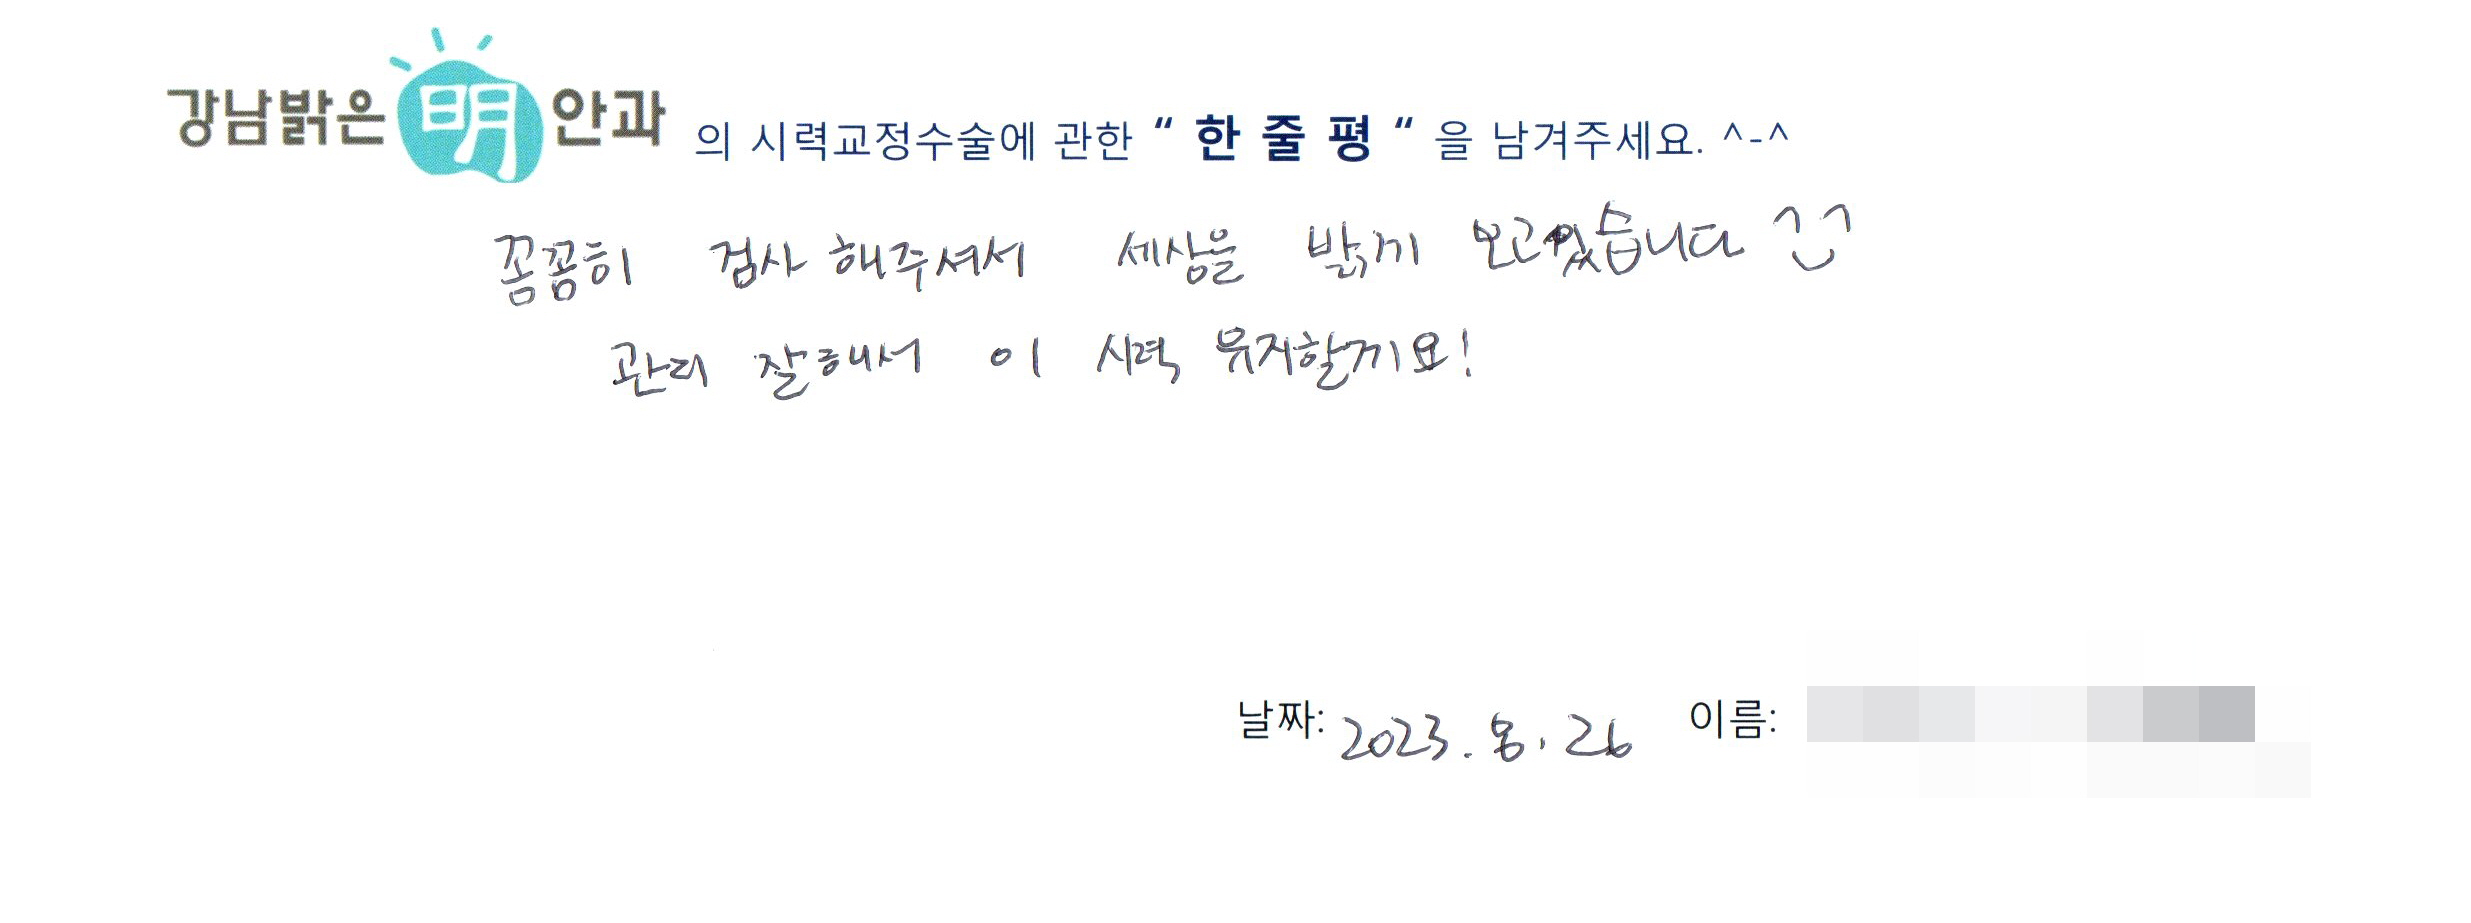 강남밝은 明 안과 의 시력교정수술에 관한 “ 한 줄 평 “ 을 남겨주세요. ^-^
꼼꼼히 검사 해주셔서 세상을 밝게 보고있습니다 ^‿^
관리 잘해서 이 시력 유지할게요!
날짜: 2023. 8. 26 이름: